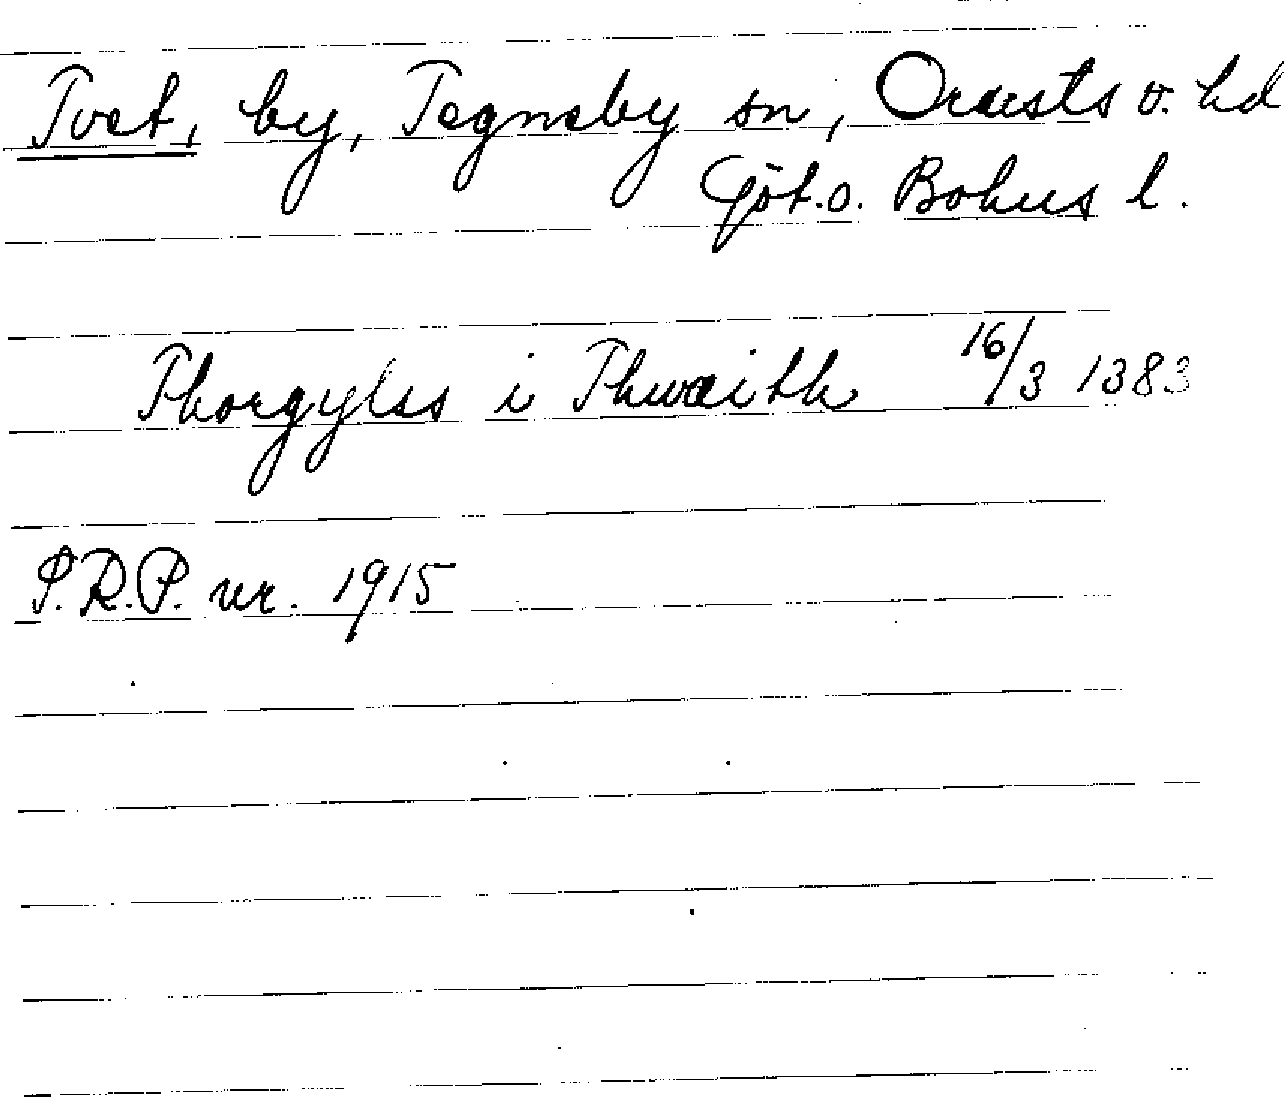 Tvet, by, Tegneby sn, Orusts v. hd
Göt. o. Bohus l.
Thorgylss i Thwæith 16/3 1383
P.R.P. nr. 1915